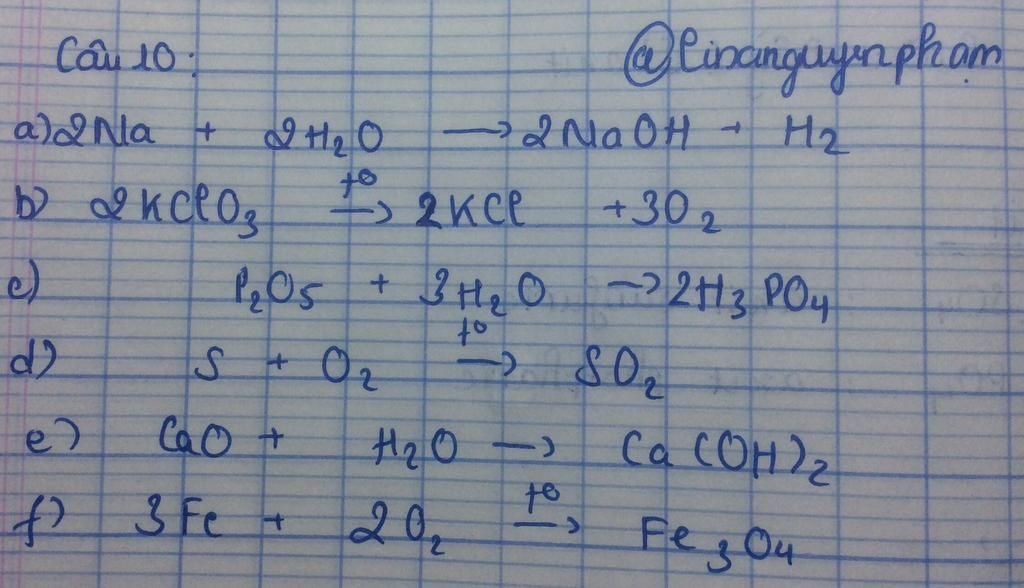 Câu 10: @linanguyenpham
a) 2Na + 2H₂O → 2NaOH + H₂
b) 2KClO₃ t° → 2KCl + 3O₂
c) P₂O₅ + 3H₂O → 2H₃PO₄
d) S + O₂ t° → SO₂
e) CaO + H₂O → Ca(OH)₂
f) 3Fe + 2O₂ t° → Fe₃O₄